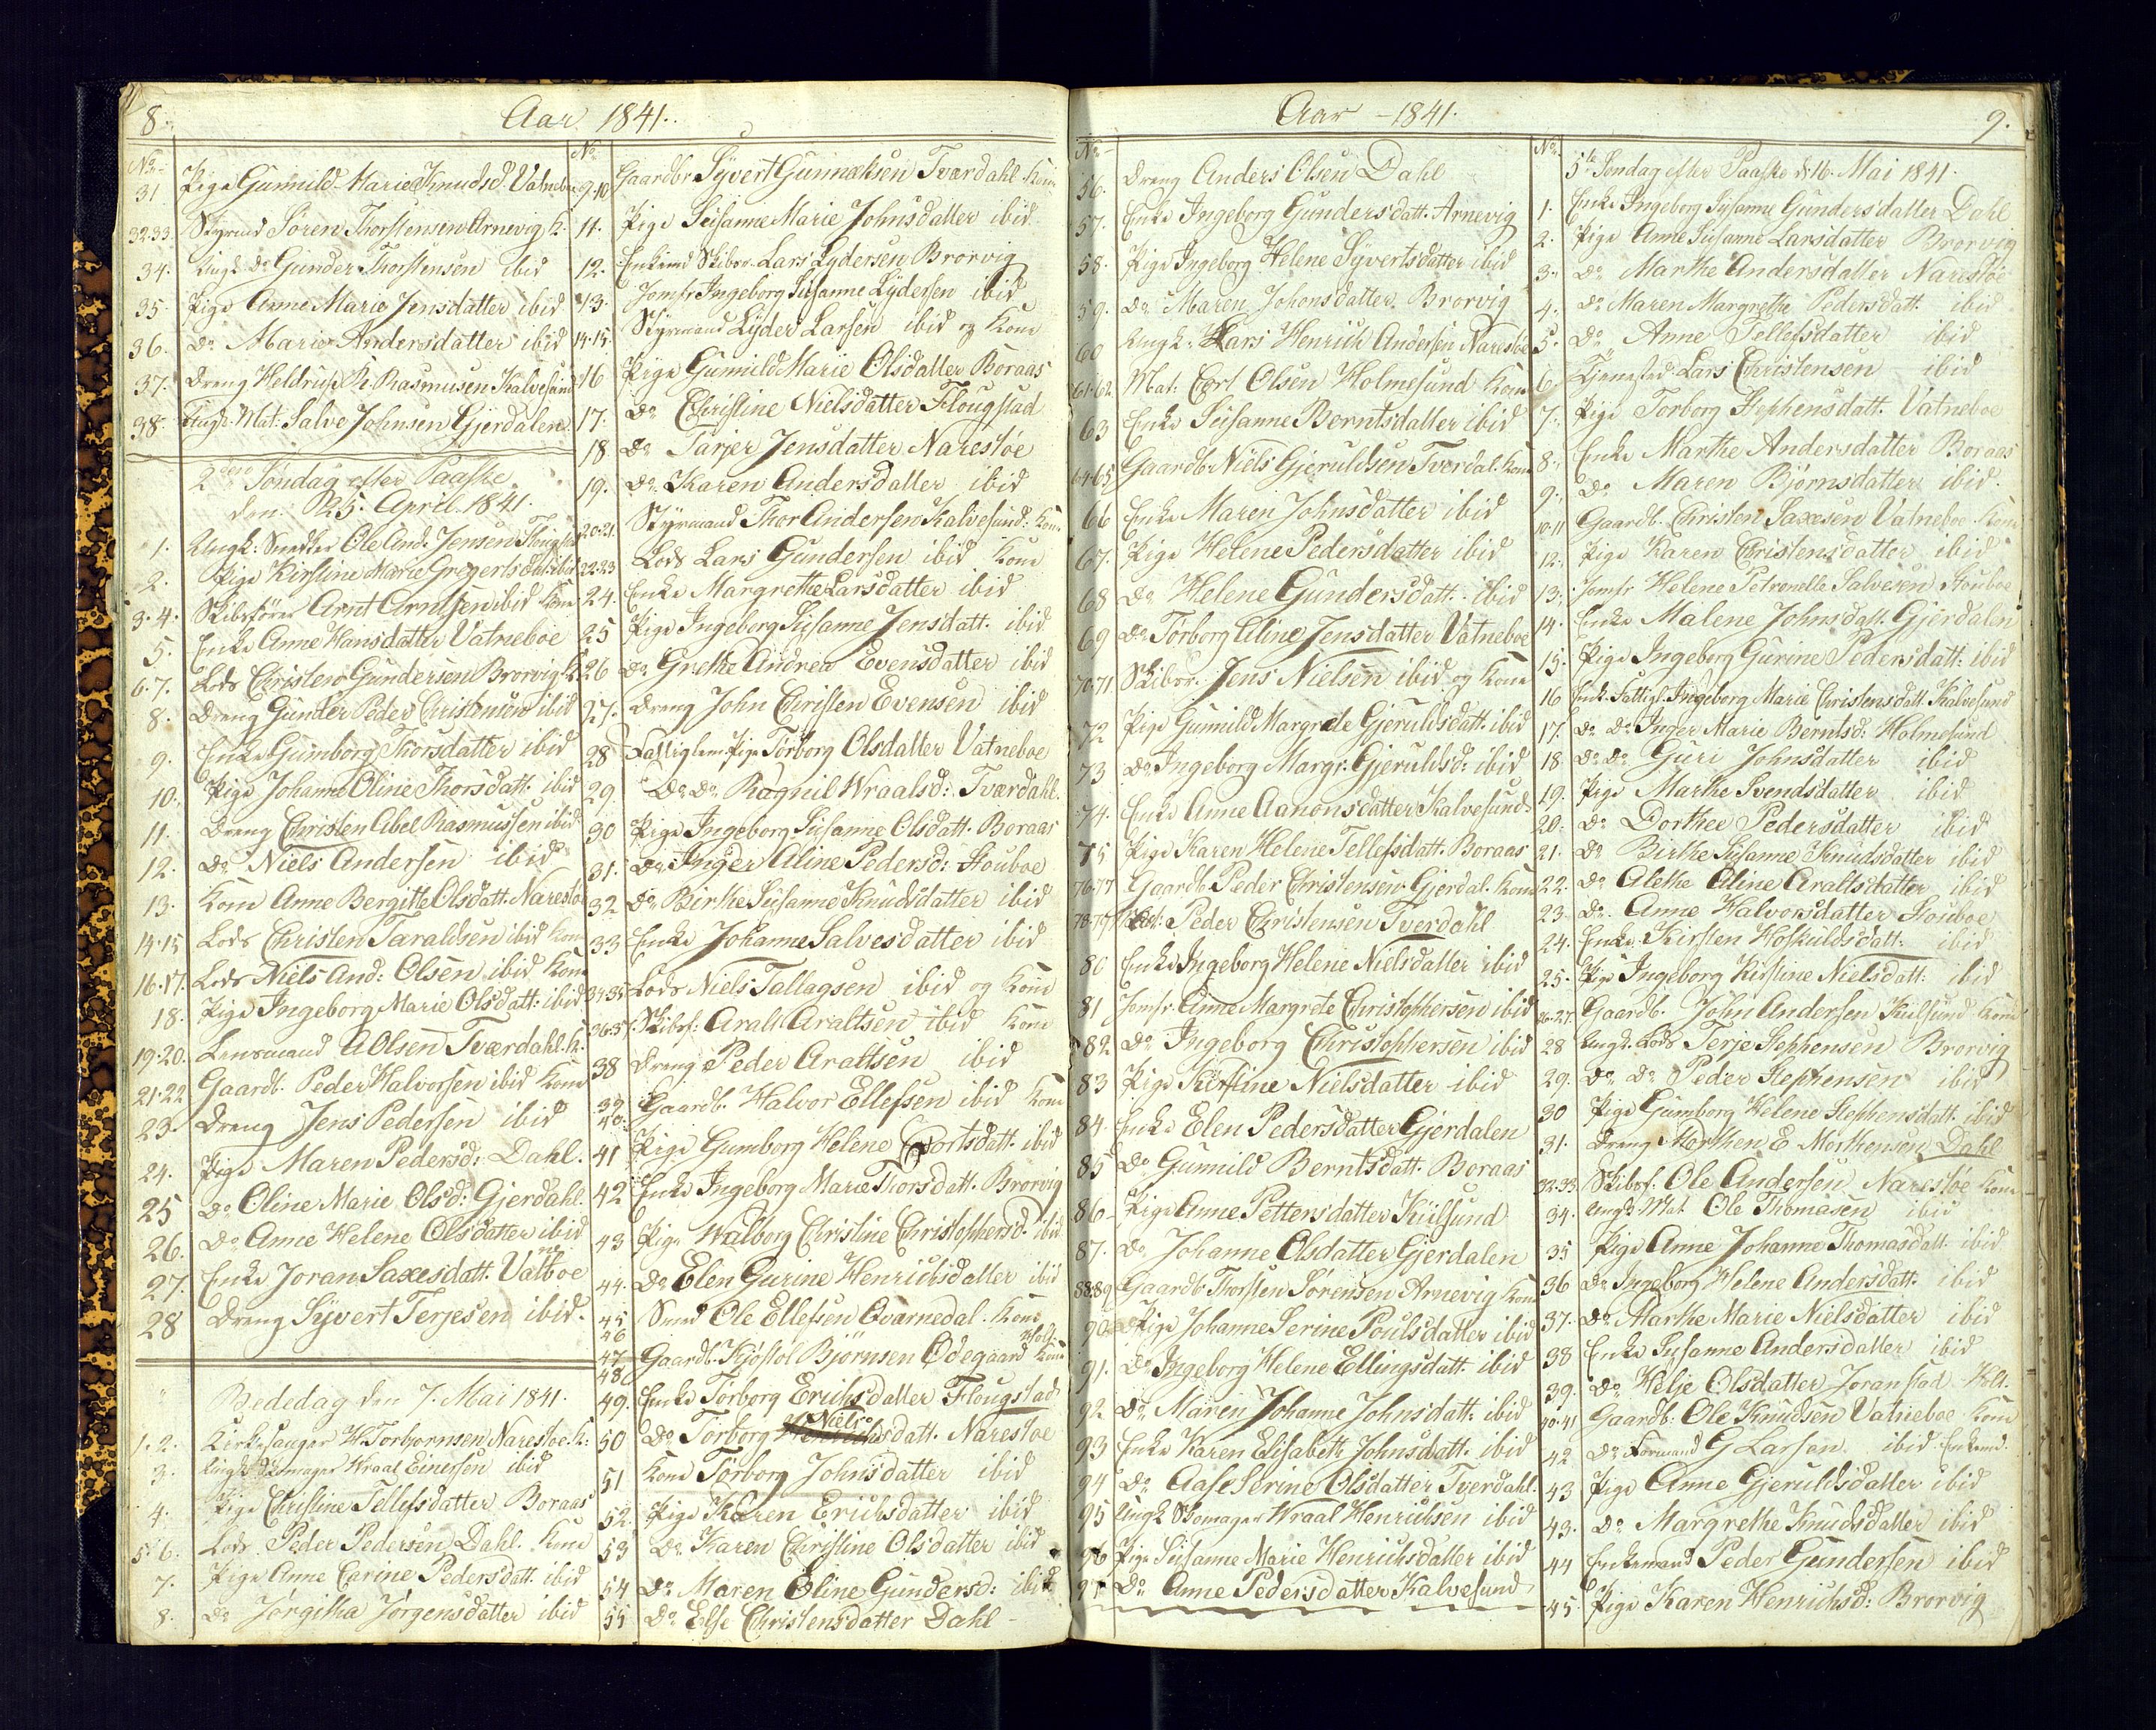 8.
Aar 1841.
No
31 Pige Gunnild Marie Knudsd. Vatnebu
32.33. Styrmd Søren Thorstensen Arnevig K.
34. Ungk. Do Gunder Thorstensen ibid
35 Pige Anne Marie Jensdatter ibid
36. Do Marie Andersdatter ibid
37. Dreng Heldrup Kr. Rasmusen Kalvesund
38. Ungk. Mat: Salve Johnsen Gjerdalen
2den Søndag efter Paaske
den 25. April. 1841.
1. Ungk: Smedker Ole And: Jensen
2. Pige Kirstine Marie Gregertsdatt. ibid
3.4. Skibsfører Arnt Arntsen ibid Kone
5. Enke Anne Hansdatter Vatneboe
6.7. Lods Christen Gundersen Brorvig K.
8. Dreng Gunder Peder Christensen ibid
9. Enke Gumborg Thorsdatter ibid
10. Pige Johanne Oline Thorsdatt. ibid
11. Dreng Christen Abel Rasmussen ibid
12. Do Niels Andersen ibid
13. Kone Anne Bergitte Olsdatt. Narestø
14.15 Lods Christen Taraldsen ibid Kone
16.17. Lods Niels And: Olsen ibid Kone
18. Pige Ingeborg Marie Olsdatt: ibid
19.20. Lensmand A Olsen Tværdahl. K.
21.22 Gaardb. Peder Halvorsen ibid Kone
23. Dreng Jens Pedersen ibid
24. Pige Maren Pedersd: Dahl.
25 Do Oline Marie Olsd: Gjerdahl.
26. Do Anne Helene Olsdatter ibid
27. Enke Joran Saxesdatt. Vatneboe
28 Dreng Syvert Terjesen ibid.
Bededag den 7. Mai 1841.
1.2. Kirkesanger H. Torbjornsen Narestoe K:
3. Ungk. Skomager Wraal Einersen ibid
4. Pige Christine Tellefsdatter Boraas
5.6. Lods Peder Pedersen Dahl. Kone
7. Pige Anne Carine Pedersdatt. ibid
8. Do Jørgitha Jørgensdatter ibid
No
9.10 Gaardbr Syvert Gunnaksen Tværdahl Kone
11. Pige Susanne Marie Johnsdatter ibid
12. Enkemd Skibsr. Lars Lydersen Brorvig
13. Jomfr Ingeborg Susanne Lydersen ibid
14.15. Styrmand Lyder Larsen ibid og Kone
16 Pige Gunnild Marie Olsdatter Boraas
17. Do Christine Nielsdatter Flougstad
18 Do Tarjer Jensdatter Narestøe
19. Do Karen Andersdatter ibid
20.21. Styrmand Thor Andersen Kalvesund: Kone
22.23 Lods Lars Gundersen ibid Kone
24. Enke Margrethe Larsdatter ibid
25 Pige Ingeborg Susanne Jensdatt. ibid
26 Do Grethe Andrea Evensdatter ibid
27. Dreng John Christen Evensen ibid
28 Fattiglem. Pige Torborg Olsdatter Vatneboe
29. Do Do Ragnil Wraalsd: Tværdahl.
30 Pige Ingeborg Susanne Olsdatt. Boraas
31. Do Inger Aline Pedersd: Stouboe
32 Do Birthe Susanne Knudsdatter ibid
33 Enke Johanne Salvesdatter ibid
34.35 Lods Niels Tallagsen ibid og Kone
36.37. Skibsf: Aralt Araltsen ibid Kone
38 Dreng Peder Araltsen ibid
39 40. Gaardb. Halvor Ellefsen ibid Kone
41 Pige Gumborg Helene Cortsdatt. ibid
42 Enke Ingeborg Marie Thorsdatt. Brorvig
43 Pige Walborg Christine Christophersd. ibid
44. Do Elen Gurine Henrichsdatter ibid
45 46 Smed Ole Ellefsen Qvarnedal. Kone
47 48 Gaardb. Kjøstol Bjørnsen Ødegaard Holt: Kone
49. Enke Torborg Erichsdatter Flougstad
50 Do Torborg Nielsdatt. Narestoe
51 Kone Torborg Johnsdatter ibid
52. Pige Karen Erichsdatter ibid
53 Do Karen Christine Olsdatter ibid
54 Do Maren Oline Gundersd: ibid
55 Do Else Christensdatter Dahl
Aar - 1841.
9.
No
56. Dreng Anders Olsen Dahl
57. Enke Ingeborg Gundersdatt. Arnevig
58. Pige Ingeborg Helene Syvertsdatter ibid
59. Do Maren Johonsdatter Brorvig
60 Ungk. Hans Henrich Andersen Narestøe
61.62. Mat: Cort Olsen Holmesund Kone
63 Enke Susanne Berntsdatter ibid
64.65 Gaardb. Niels Gjeruldsen Tverdal. Kone
66 Enke Maren Johnsdatter ibid
67. Pige Helene Pedersdatter ibid
68 Do Helene Gundersdatt. ibid
69 Do Torborg Eline Jensdatter Vatneboe
70.71 Skibsr. Jens Nielsen ibid og Kone
72 Pige Gunnild Margrete Gjeruldsdatt. ibid
73 Do Ingeborg Margr: Gjeruldsd: ibid
74. Enke Anne Aanonsdatter Kalvesund
75 Pige Karen Helene Tellefsdatt. Boraas
76.77 Gaardb. Peder Christensen Gjerdal. Kone
78.79 Peder Christensen Tverdahl
80 Enke Ingeborg Helene Nielsdatter ibid
81 Jomfr: Anne Margrete Christophersen ibid
82 Do Ingeborg Christophersen ibid
83 Pige Kirstine Nielsdatter ibid
84. Enke Elen Pedersdatter Gjerdalen
85 Do Gunnild Berntsdatt. Boraas
86 Pige Anne Pettersdatter Kiilsund
87. Do Johanne Olsdatter Gjerdalen
88.89 Gaardb. Thorsten Sørensen Arnevig Kone
90 Pige Johanne Serine Poulsdatter ibid
91. Do Ingeborg Helene Ellingsdatt. ibid
92 Do Maren Johanne Johnsdatt. ibid
93 Enke Karen Elisabeth Johnsdatt. ibid
94 Do Aase Serine Olsdatter Tverdahl.
95 Ungk Skomager Wraal Henrichsen ibid
96 Pige Susanne Marie Henrichsdatter ibid
97 Do Anne Pedersdatter Kalvesund
No
5te Søndag efter Paaske d: 16. Mai 1841.
1. Enke Ingeborg Susanne Gundersdatter Dahl
2. Pige Anne Susanne Larsdatter Brorvig
3. Do Marthe Andersdatter Narestøe
4. Do Maren Margrethe Pedersdatt. ibid
5. Do Anne Tellefsdatter ibid
6. Tjenested: Lars Christensen ibid
7. Pige Torborg Stephensdatt. Vatneboe
8. Enke Marthe Andersdatter Boraas
9. Do Maren Bjørnsdatter ibid.
10.11 Gaardb. Christen Saxesen Vatneboe Kone
12. Pige Karen Christensdatter ibid
13. Jomfr Helene Petronelle Salvesen Stouboe
14. Enke Malene Johnsdatt. Gjerdalen
15. Pige Ingeborg Gurine Pedersdatt. ibid
16 Enk. Fattigl. Ingeborg Marie Christensdatt. Kalvesund
17. Do Do Inger Marie Berntsd: Holmesund
18 Do Do Guri Johnsdatter ibid
19. Pige Marthe Svendsdatter ibid
20. Do Dorthee Pedersdatter ibid
21. Do Birthe Susanne Knudsdatter ibid
22. Do Alethe Oline Araltsdatter ibid
23. Do Anne Halvorsdatter Stouboe
24. Enke Kirsten Hoskuldsdatt: ibid
25. Pige Ingeborg Kirstine Nielsdatt: ibid
26.27. Gaardb. John Andersen Kiilsund Kone
28 Ungk. Lods Terje Stephensen Brorvig
29. Do Do Peder Stephensen ibid
30 Pige Gumborg Helene Stephensdatt. ibid
31. Dreng Morthen E Morthensen Dahl
32.33. Skibsf. Ole Andersen Narestøe Kone
34. Ungk Mat Ole Thomasen ibid
35 Pige Anne Johanne Thomasdatt. ibid
36 Do Ingeborg Helene Andersdatt. ibid
37. Do Marthe Marie Nielsdatter ibid
38 Enke Susanne Andersdatter ibid
39. Do Helje Olsdatter Joranstad Holt.
40.41 Gaardb: Ole Knudsen Vatneboe Kone
42 Do Formand G Larsen ibid Enkemd.
43 Pige Anne Gjeruldsdatter ibid
43. Do Margrethe Knudsdatter ibid
44 Enkemand Peder Gundersen ibid
45. Pige Karen Henrichsd: Brorvig